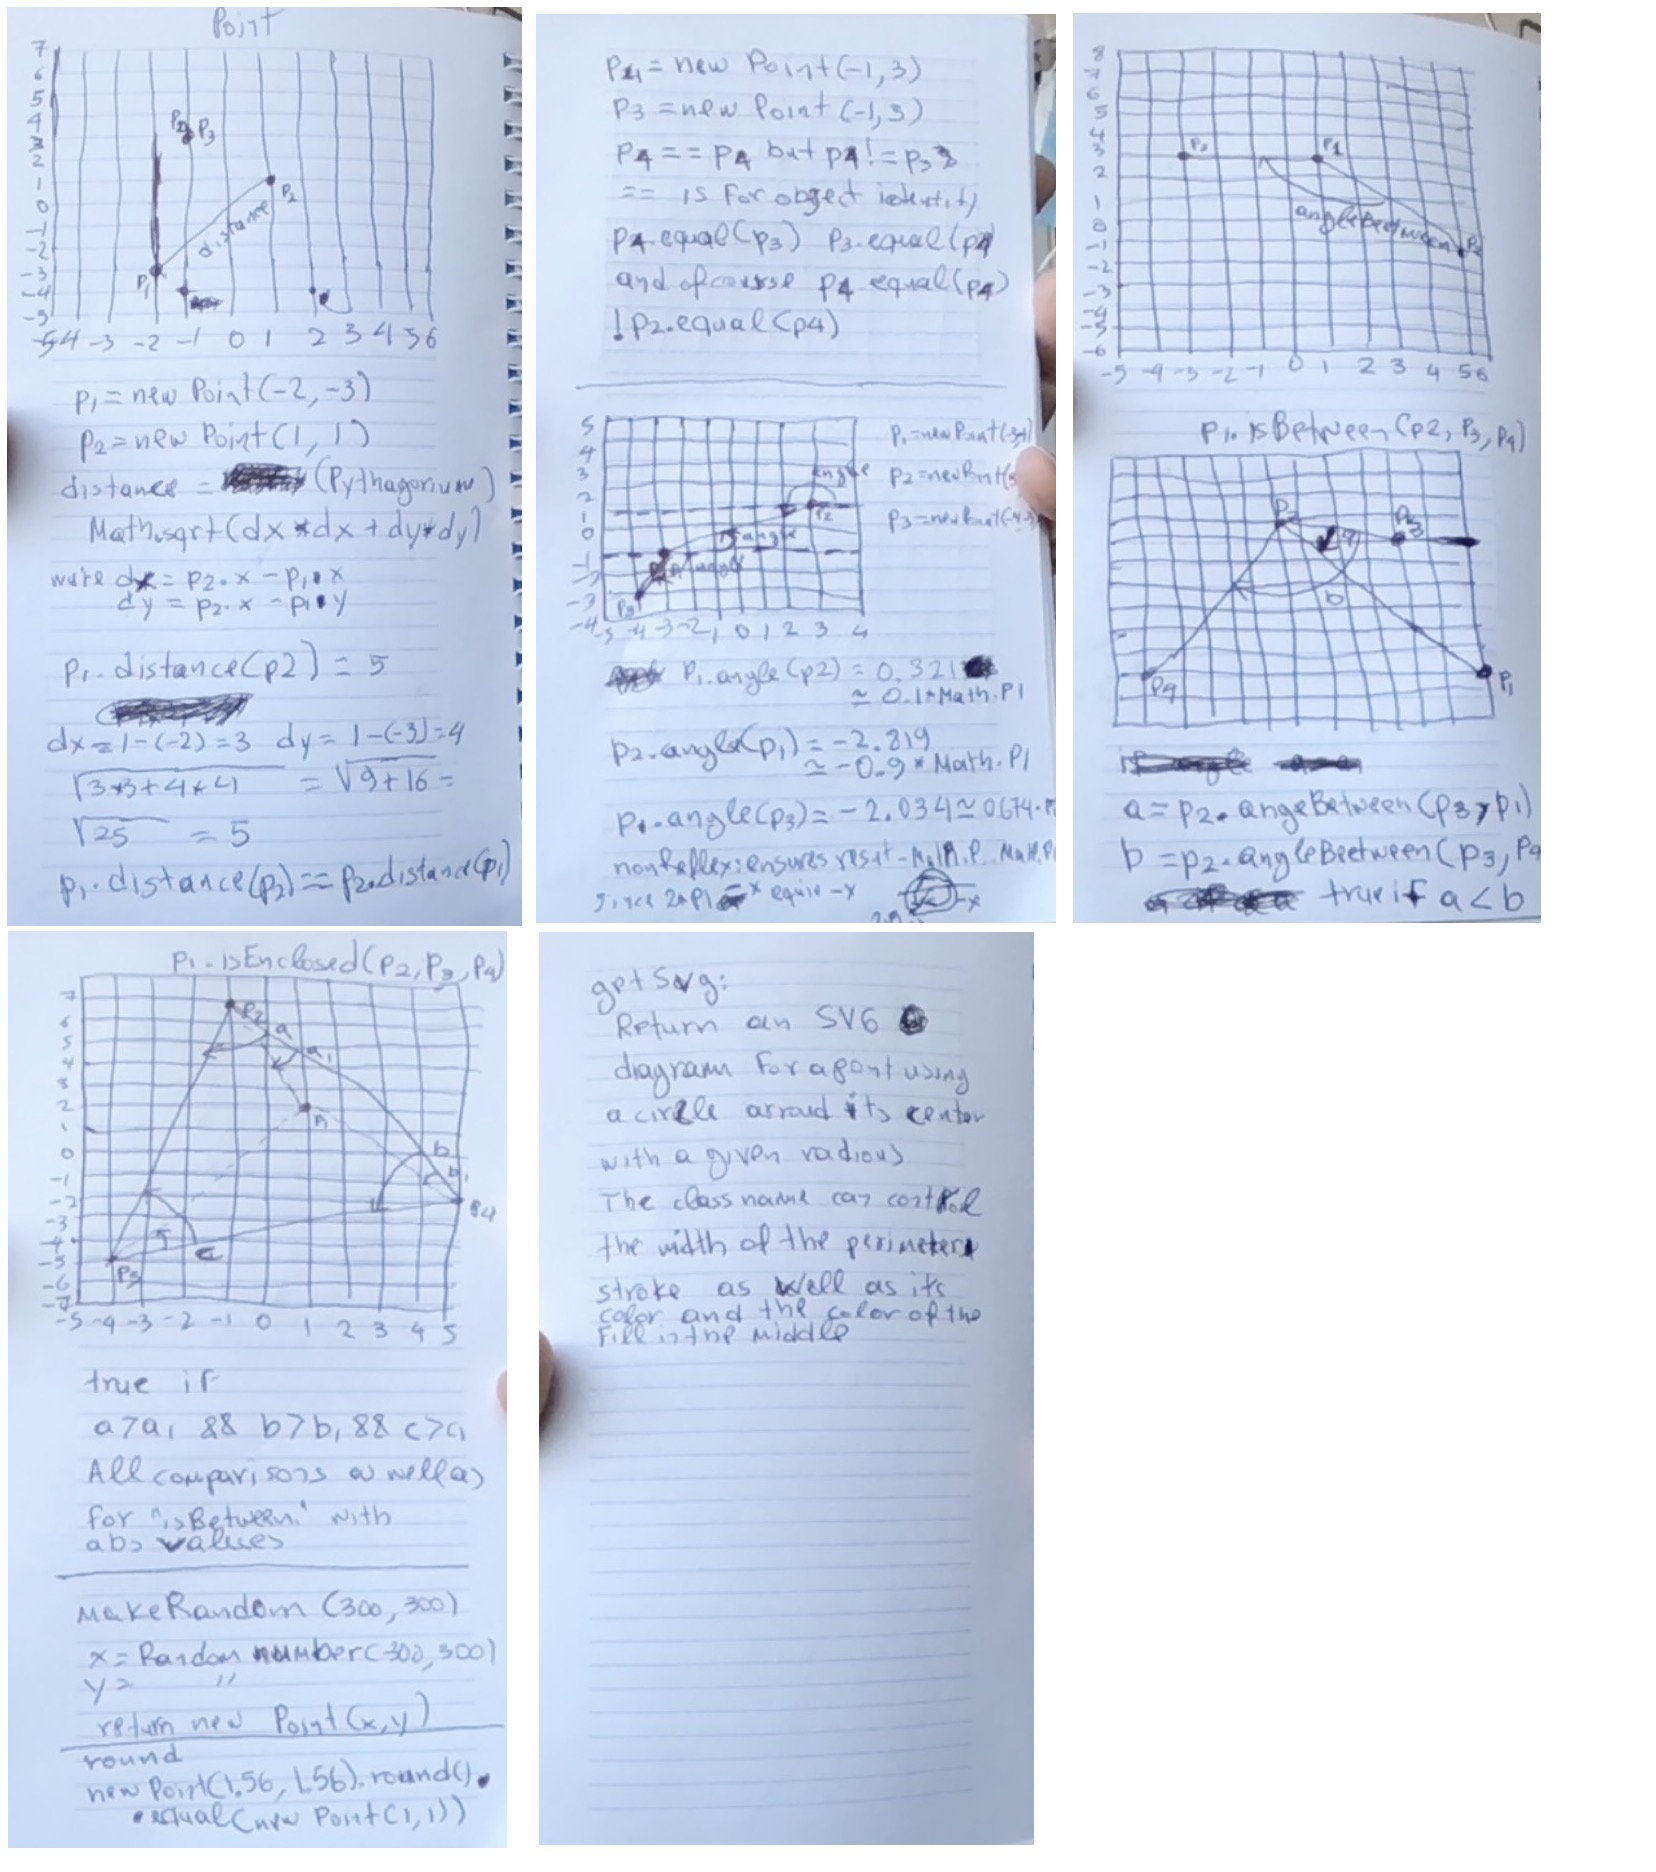 Point
7
6
5
4
3
2
1
0
-1
-2
-3
-4
-5
P2 P3
P2
distance
P1
-5 -4 -3 -2 -1 0 1 2 3 4 5 6
P1 = new Point(-2, -3)
P2 = new Point(1, 1)
distance = (Pythagorium)
Math.sqrt(dx*dx + dy*dy)
were dx = p2.x - p1.x
dy = p2.x - p1.y
P1.distance(p2) = 5
dx = 1-(-2) = 3 dy = 1-(-3) = 4
√3*3+4*4 = √9+16 =
√25 = 5
p1.distance(p2) == p2.distance(p1)
P4 = new Point(-1, 3)
P3 = new Point(-1, 3)
P4 == P4 but p4 != p3
== is for object identity
P4.equal(p3) P3.equal(p4)
and ofcourse p4.equal(p4)
!p2.equal(p4)
5
4
3
2
1
0
-1
-2
-3
-4
angle
P2
angle
P1 angle
P3
-5 -4 -3 -2 -1 0 1 2 3 4
P1 = new Point(-3,-1)
P2 = new Point(3
P3 = new Point(-4,-3
P1.angle(p2) = 0.321
≈ 0.1*Math.PI
P2.angle(p1) = -2.819
≈ -0.9*Math.PI
P1.angle(p3) = -2.034 ≈ 0.674.
nonReflex: ensures reslt -Math.P. Math.P
since 2*PI -x equiv -x
-x
8
7
6
5
4
3
2
1
0
-1
-2
-3
-4
-5
-6
P3 P1
angleBeetween P2
-5 -4 -3 -2 -1 0 1 2 3 4 5 6
P1.isBetween(p2, P3, P4)
P2 P3
a
b
P4 P1
a = p2.angeBetween(p3, p1)
b = p2.angleBeetween(p3, P4
true if a < b
P1.isEnclosed(P2, P3, P4)
7
6
5
4
3
2
1
0
-1
-2
-3
-4
-5
-6
-7
P2 a
a1
P1
b
b1
P4
c
P3
-5 -4 -3 -2 -1 0 1 2 3 4 5
true if
a > a1 && b > b1 && c > c1
All comparisons as well as
for "isBetween" with
abs values
MakeRandom (300, 300)
x = Random number(-300, 300)
y = "
return new Point(x, y)
round
new Point(1.56, 1.56).round().
.equal(new Point(1,1))
getSvg:
Return an SVG
diagram For a pont using
a circle arroud its center
with a given radious
The class name can control
the width of the perimeter
stroke as well as its
color and the color of the
Fill in the middle